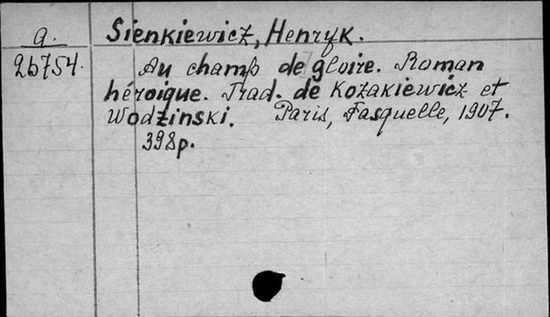 a.
26754.
Sienkiewicz, Henryk.
Au champ de gloire. Roman
héroique. Trad. de Kozakiewicz et
Wodzinski. Paris, Fasquelle, 1907.
398p.